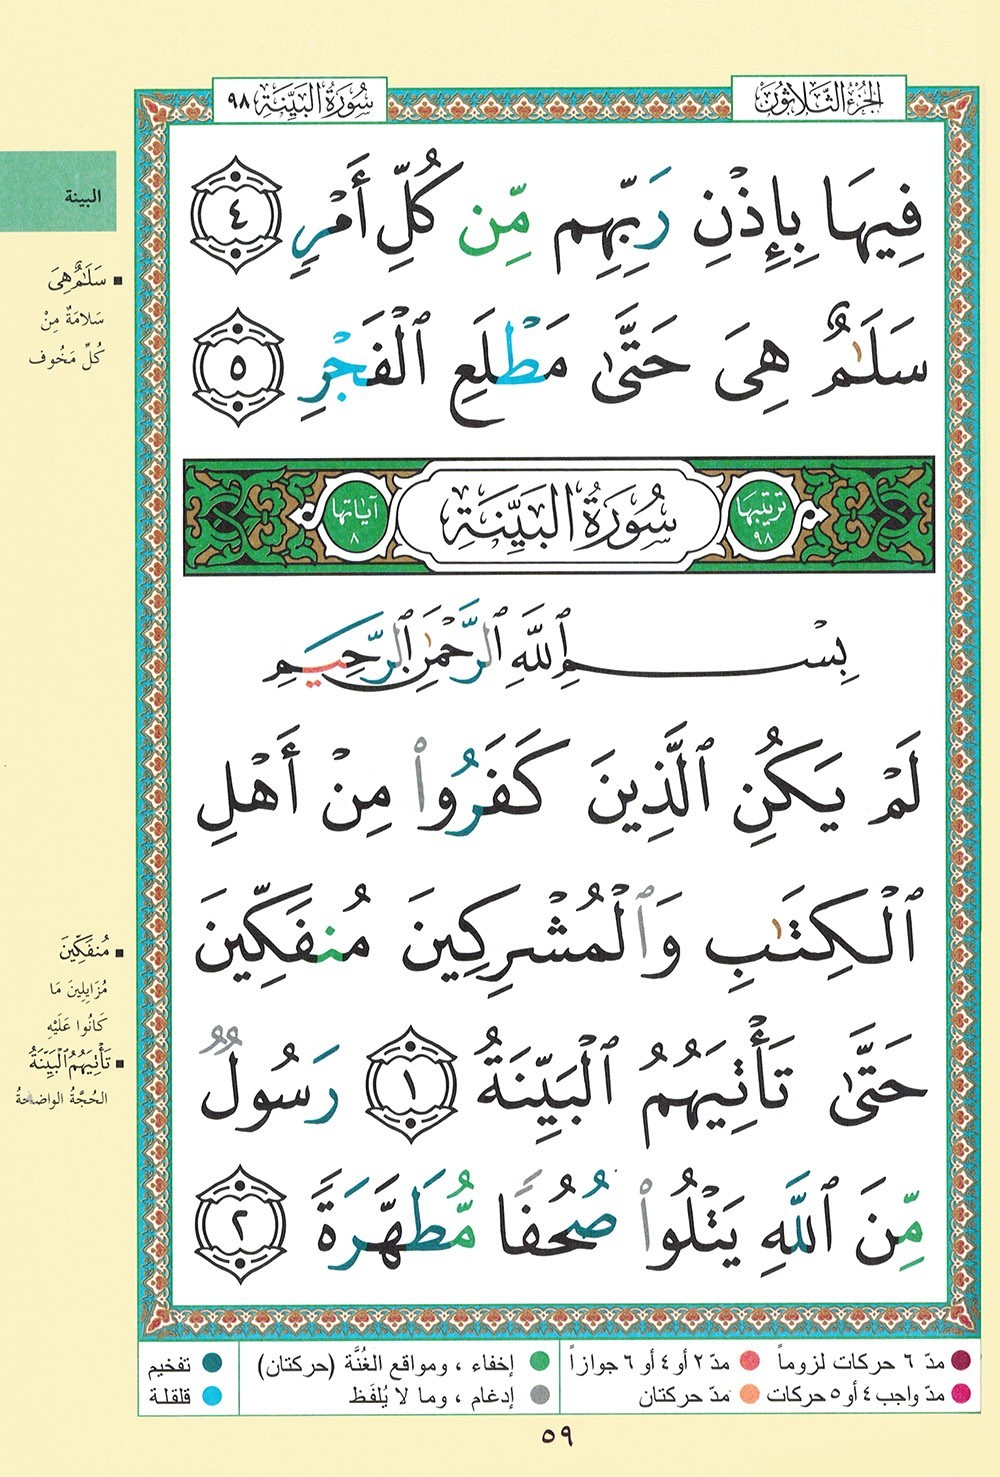 الجزء الثلاثون
سورة البينة ٩٨
البينة
فِيهَا بِإِذْنِ رَبِّهِم مِّن كُلِّ أَمْرٍ ٤
سَلَٰمٌ هِىَ حَتَّىٰ مَطْلَعِ ٱلْفَجْرِ ٥
■ سَلَٰمٌ هِىَ
سَلامَةٌ مِنْ
كُلِّ مَخُوف
ترتيبها ٩٨
سُورَةُ البَيِّنَةِ
آياتها ٨
بِسْمِ ٱللَّهِ ٱلرَّحْمَٰنِ ٱلرَّحِيمِ
لَمْ يَكُنِ ٱلَّذِينَ كَفَرُوا۟ مِنْ أَهْلِ
ٱلْكِتَٰبِ وَٱلْمُشْرِكِينَ مُنفَكِّينَ
حَتَّىٰ تَأْتِيَهُمُ ٱلْبَيِّنَةُ ١ رَسُولٌ
مِّنَ ٱللَّهِ يَتْلُوا۟ صُحُفًا مُّطَهَّرَةً ٢
■ مُنفَكِّينَ
مُزَايِلِينَ مَا
كَانُوا عَلَيْهِ
■ تَأْتِيَهُمُ ٱلْبَيِّنَةُ
الحُجَّةُ الواضحةُ
مدّ ٦ حركات لزوماً
مدّ ٢ أو ٤ أو ٦ جوازاً
إخفاء، ومواقع الغُنَّة (حركتان)
تفخيم
مدّ واجب ٤ أو ٥ حركات
مدّ حركتان
إدغام، وما لا يُلفَظ
قلقلة
٥٩